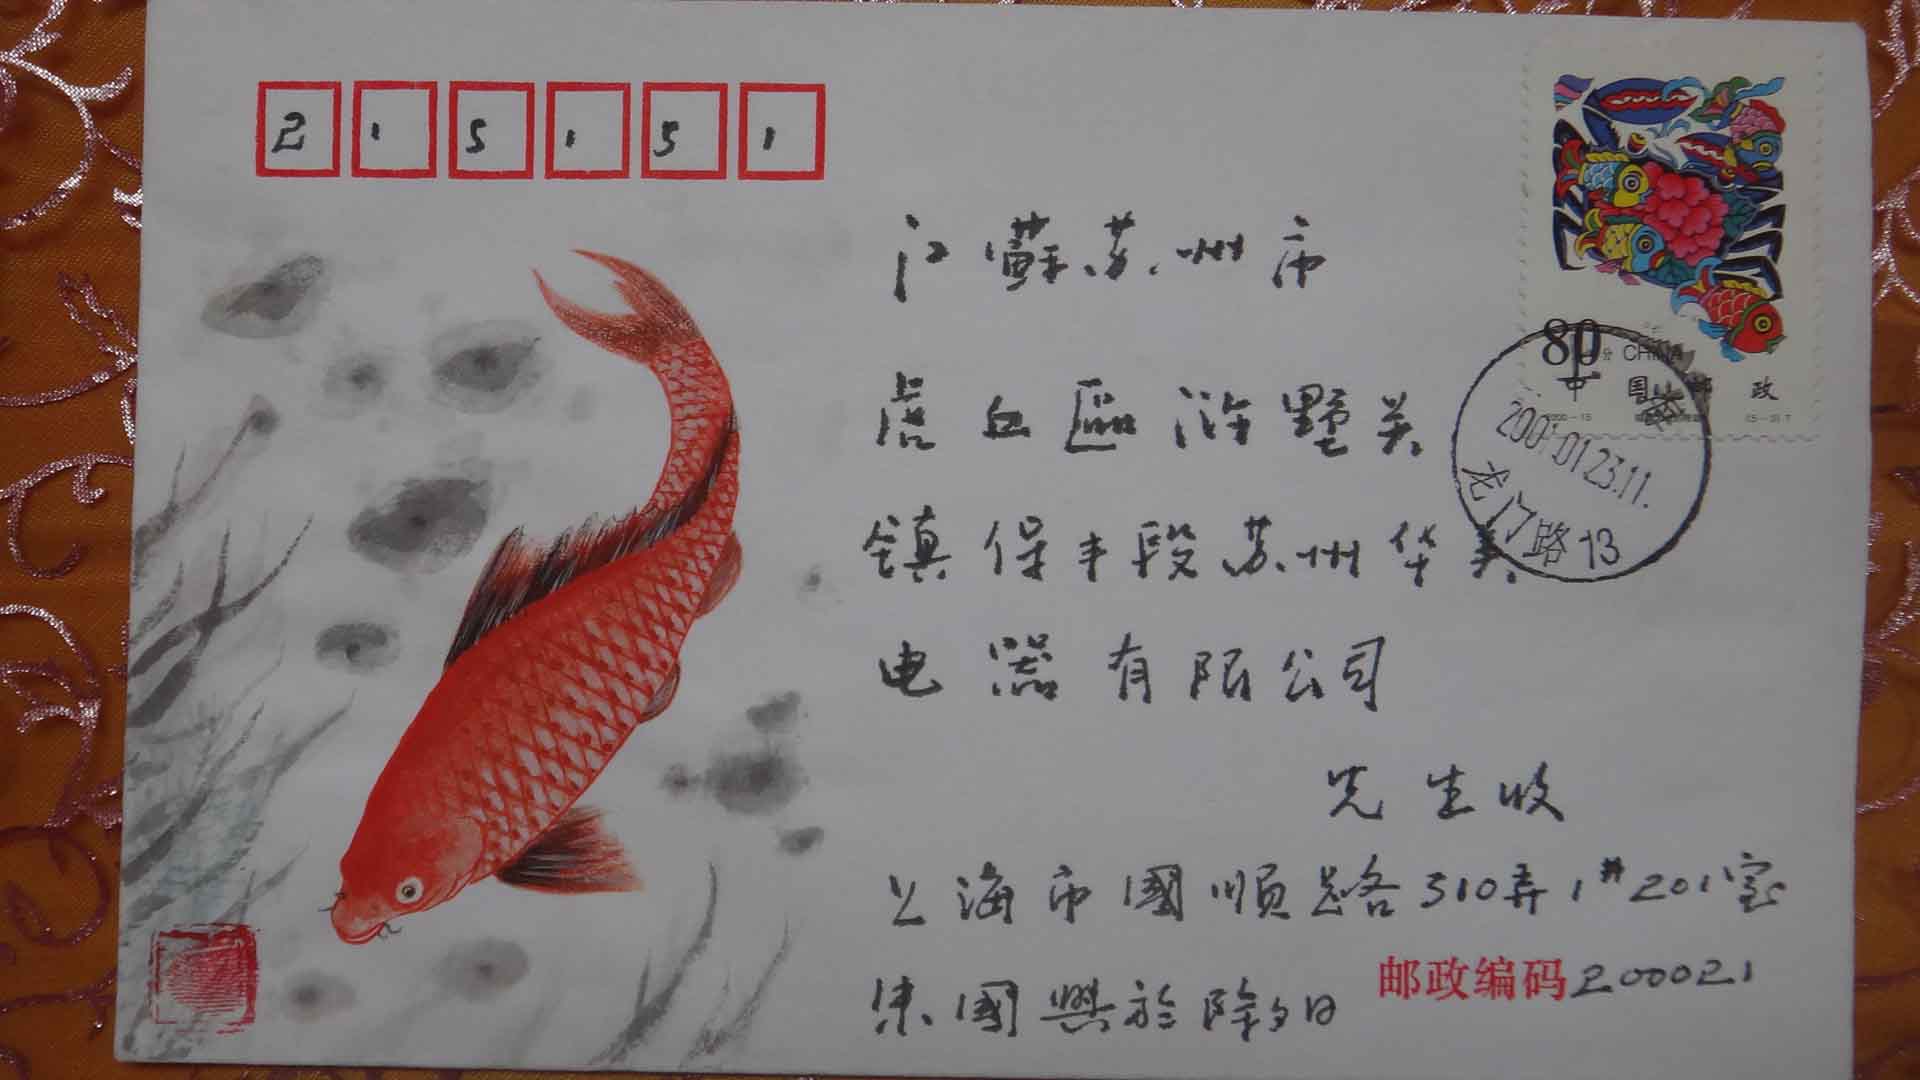 215151
80分 CHINA
中国邮政
2000-15
(5-3)T
2001.01.23.11.
龙门路 13
江蘇苏州市
虎丘區浒墅关
鎮保丰段苏州华美
电器有限公司
先生收
上海市國順路310弄1#201室
邮政编码200021
國興於除夕日